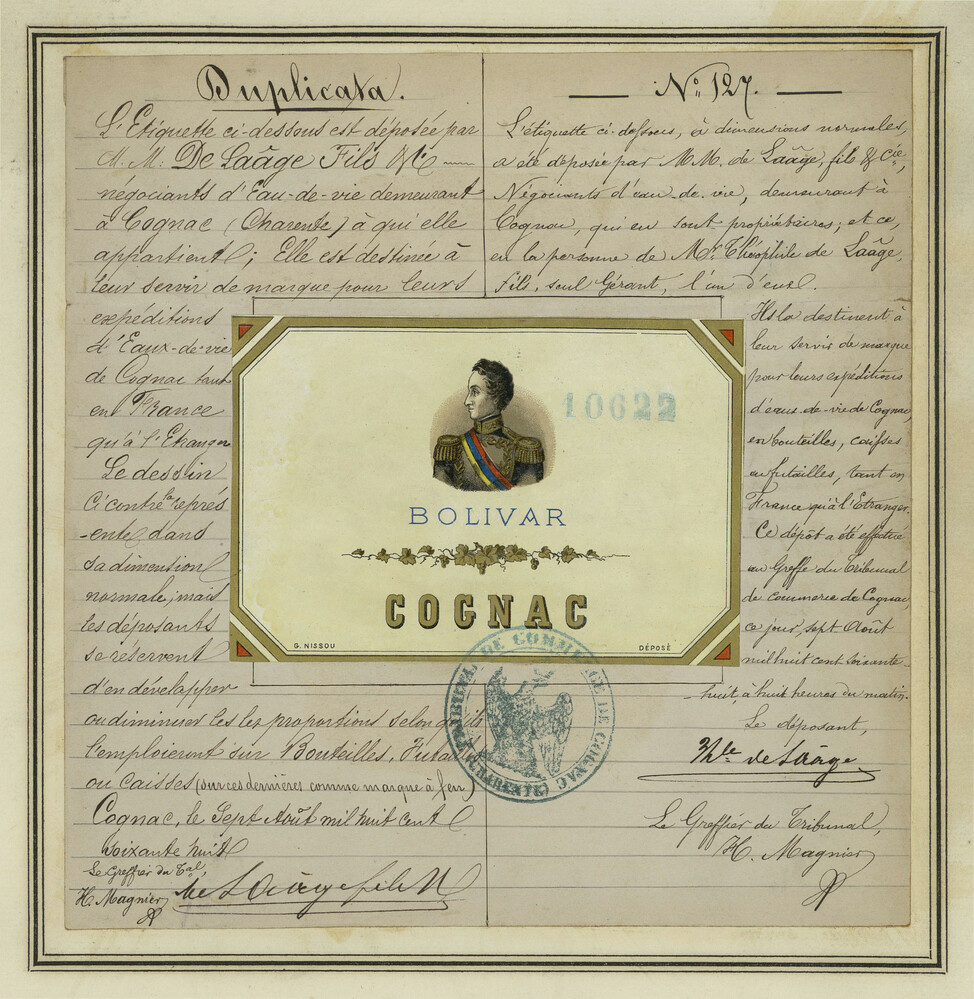 Duplicata.
L'Etiquette ci-dessous est déposée par
M.M. De Laâge Fils & Cie
négociants d'Eau-de-vie demeurant
à Cognac (Charente) à qui elle
appartient; Elle est destinée à
leur servir de marque pour leurs
expeditions
d'Eaux-de-vie
de Cognac tant
en France
qu'à l'Etranger
Le dessin
Ci contre la représ
-ente, dans
sa dimention
normale; mais
les déposants
se réservent
d'en développer
ou diminuer les les proportions selon qu'ils
l'emploieront sur Bouteilles, Futailles
ou caisses (sur ces dernières comme marque à feu)
Cognac, le Sept Août mil huit cent
soixante huit
Le Greffier du Tal,
H. Magnier
de Laâge fils
No 127.
L'étiquette ci-dessous, à dimensions normales,
a été déposée par M.M. de Laâge, fils & Cie,
Négociants d'eau-de-vie, demeurant à
Cognac, qui en sont propriétaires; et ce,
en la personne de Mr. Théophile de Laâge,
fils, seul Gérant, l'un d'eux.
Ils la destinent à
leur servir de marque
pour leurs expéditions
d'eaux-de-vie de Cognac,
en bouteilles, caisses
ou futailles, tant en
France qu'à l'Etranger.
Ce dépôt a été effectué
au Greffe du Tribunal
de commerce de Cognac,
ce jour, sept Août
mil huit cent soixante-
huit, à huit heures du matin.
Le déposant,
Thle de Laâge
Le Greffier du Tribunal,
H. Magnier
10622
BOLIVAR
COGNAC
G. NISSOU
DÉPOSÉ
TRIBUNAL DE COMMERCE DE COGNAC (CHARENTE)